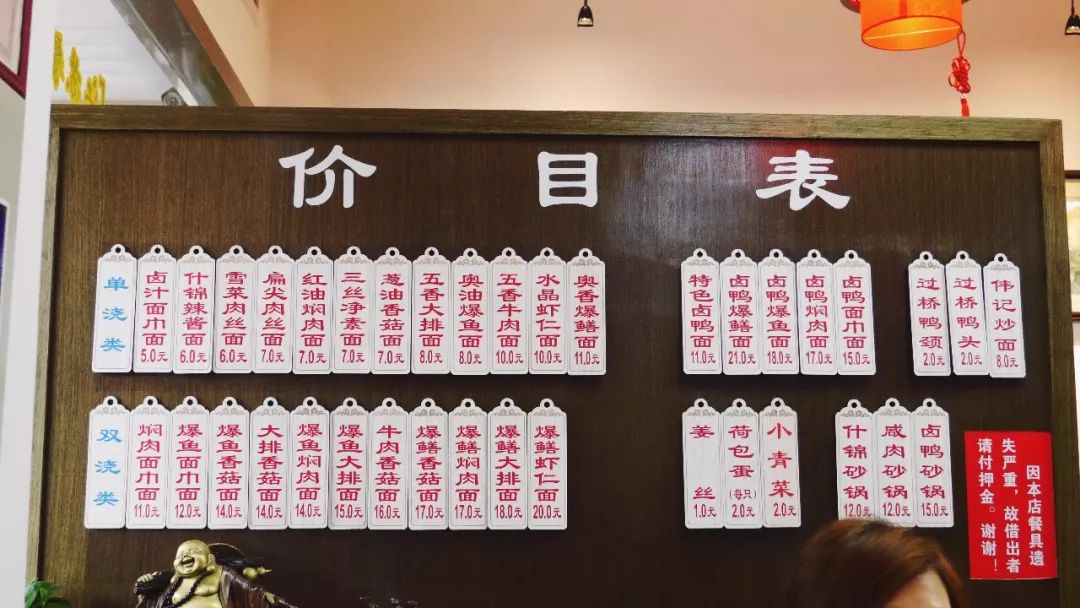 价目表
单浇类
卤汁面巾面5.0元
什锦辣酱面6.0元
雪菜肉丝面6.0元
扁尖肉丝面7.0元
红油焖肉面7.0元
三丝净素面7.0元
葱油香菇面7.0元
五香大排面8.0元
奥油爆鱼面8.0元
五香牛肉面10.0元
水晶虾仁面10.0元
奥香爆鳝面11.0元
特色卤鸭面11.0元
卤鸭爆鳝面21.0元
卤鸭爆鱼面18.0元
卤鸭焖肉面17.0元
卤鸭面巾面15.0元
过桥鸭颈2.0元
过桥鸭头2.0元
伟记炒面8.0元
双浇类
焖肉面巾面11.0元
爆鱼面巾面12.0元
爆鱼香菇面14.0元
大排香菇面14.0元
爆鱼焖肉面14.0元
爆鱼大排面15.0元
牛肉香菇面16.0元
爆鳝香菇面17.0元
爆鳝焖肉面17.0元
爆鳝大排面18.0元
爆鳝虾仁面20.0元
姜丝1.0元
荷包蛋(每只)2.0元
小青菜2.0元
什锦砂锅12.0元
咸肉砂锅12.0元
卤鸭砂锅15.0元
因本店餐具遗
失严重，故借出者
请付押金。谢谢！